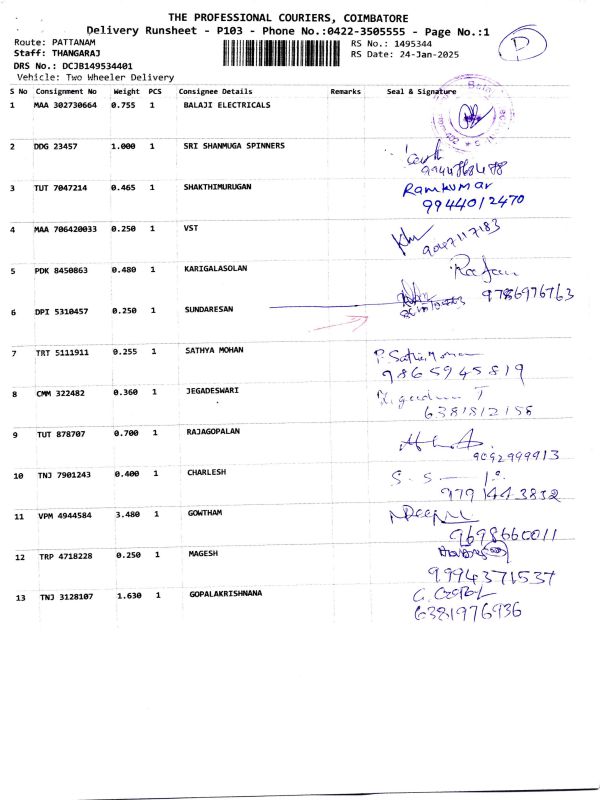 THE PROFESSIONAL COURIERS, COIMBATORE
Delivery Runsheet - P103 - Phone No.:0422-3505555 - Page No.:1
Route: PATTANAM RS No.: 1495344
Staff: THANGARAJ RS Date: 24-Jan-2025
DRS No.: DCJB149534401
Vehicle: Two Wheeler Delivery
P
S No Consignment No Weight PCS Consignee Details Remarks Seal & Signature
1 MAA 302730664 0.755 1 BALAJI ELECTRICALS
2 DDG 23457 1.000 1 SRI SHANMUGA SPINNERS
3 TUT 7047214 0.465 1 SHAKTHIMURUGAN Ramkumar
9944012470
4 MAA 706420033 0.250 1 VST
9047117183
5 PDK 8450863 0.480 1 KARIGALASOLAN
9786976763
6 DPI 5310457 0.250 1 SUNDARESAN
7 TRT 5111911 0.255 1 SATHYA MOHAN P. Sathia Mohan
9865945819
8 CMM 322482 0.360 1 JEGADESWARI
6381812156
9 TUT 878707 0.700 1 RAJAGOPALAN
9092999913
10 TNJ 7901243 0.400 1 CHARLESH
9791443832
11 VPM 4944584 3.480 1 GOWTHAM
9698660011
12 TRP 4718228 0.250 1 MAGESH
9994371537
13 TNJ 3128107 1.630 1 GOPALAKRISHNANA
6381976936